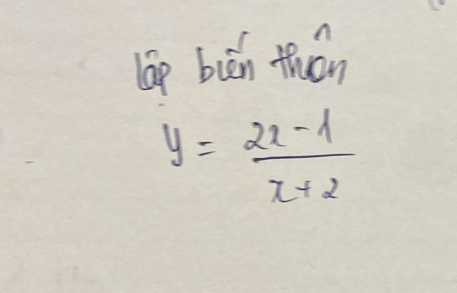 lập biến thiên
y = \frac{2x - 1}{x + 2}